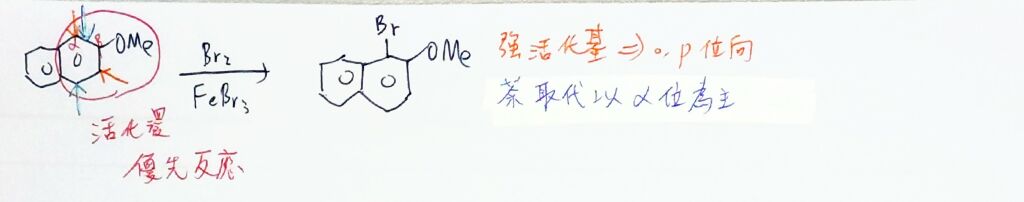 α β OMe
Br₂
FeBr₃
Br
OMe
强活化基 => o, p 位向
萘取代以α位為主
活化環
優先反應